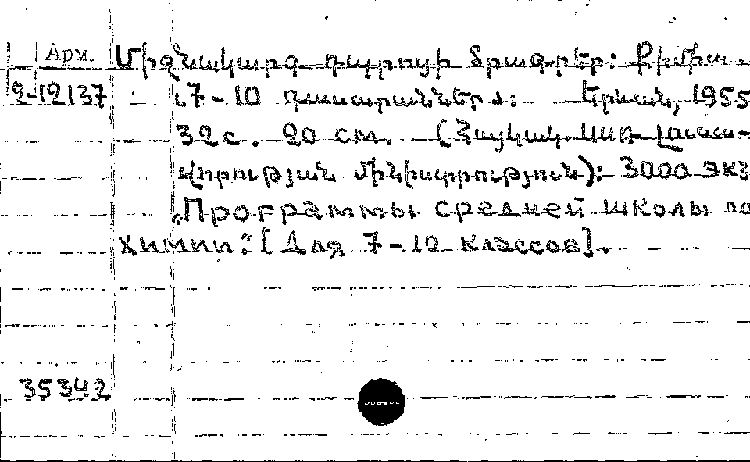 Арм.
2-12137
Միջնակարգ դպրոցի ծրագրեր: Քիմիա.
7-10 դասարաններ: Երևան, 1955
32 с. 20 см. (Հայկական ՍՍՌ լուսա-
վորության մինիստրություն): 3000 экз
„Программы средней школы по
химии". [Для 7-10 классов].
35342